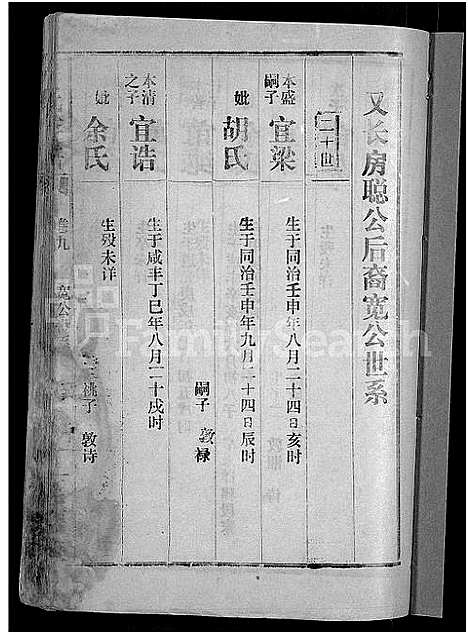 又长房聪公后裔宽公世系
二十世
本盛嗣子 宜梁 生于同治壬申年八月二十四日亥时
妣 胡氏 生于同治壬申年九月二十四日辰时
嗣子 敦禄
本清之子 宜诰 生于咸丰丁巳年八月二十戌时
妣 余氏 生殁未详
祧子 敦诗
卷九 宽公
FamilySearch